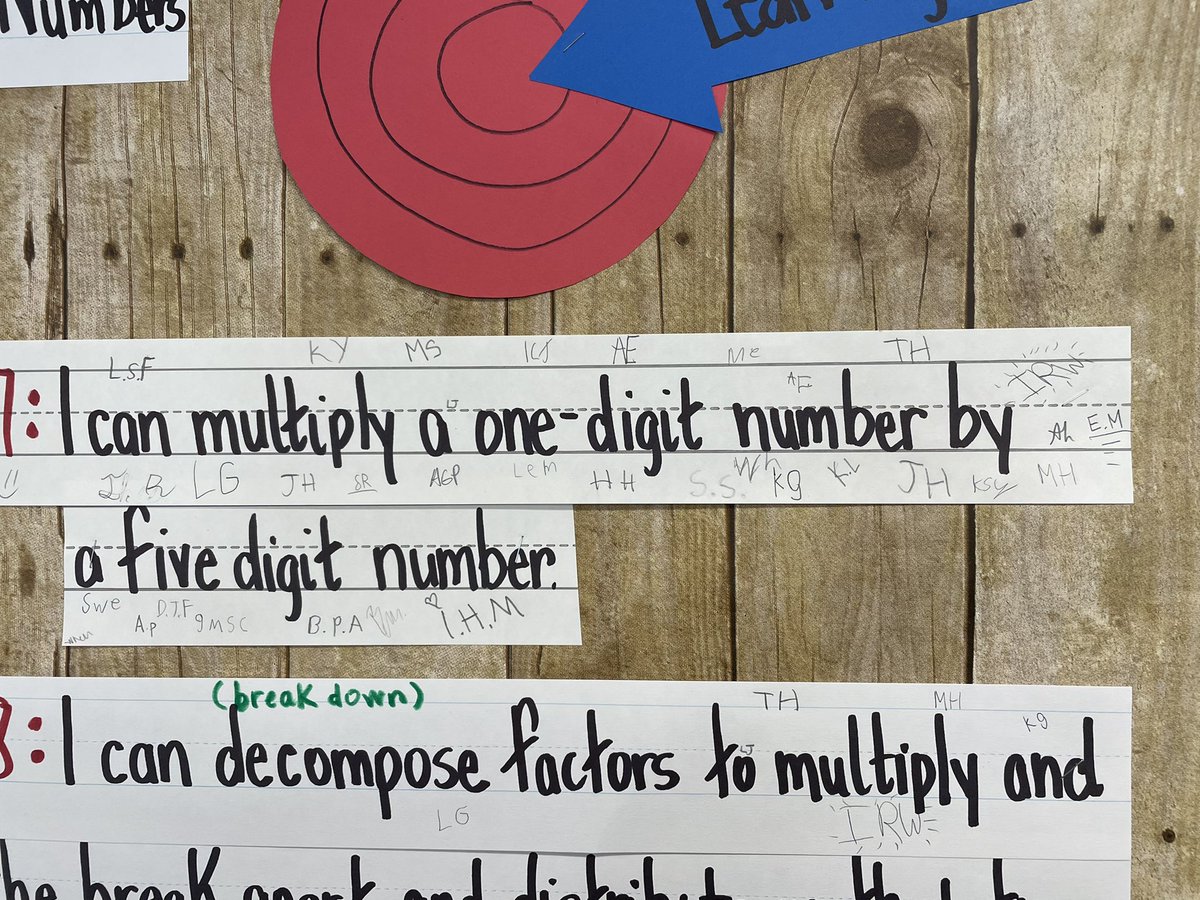 Numbers
L.S.F KY MS AE Me TH IRW
7: I can multiply a one-digit number by
AE LJ Ah E.M
LG JH SR AGP Lem HH S.S. Wh kg KL JH KSY MH
a five digit number.
Swe A.p D.J.F gmsc B.P.A I.H.M
when
(break down) TH MH kg
8: I can decompose factors to multiply and
LJ
LG IRW
the break apart and